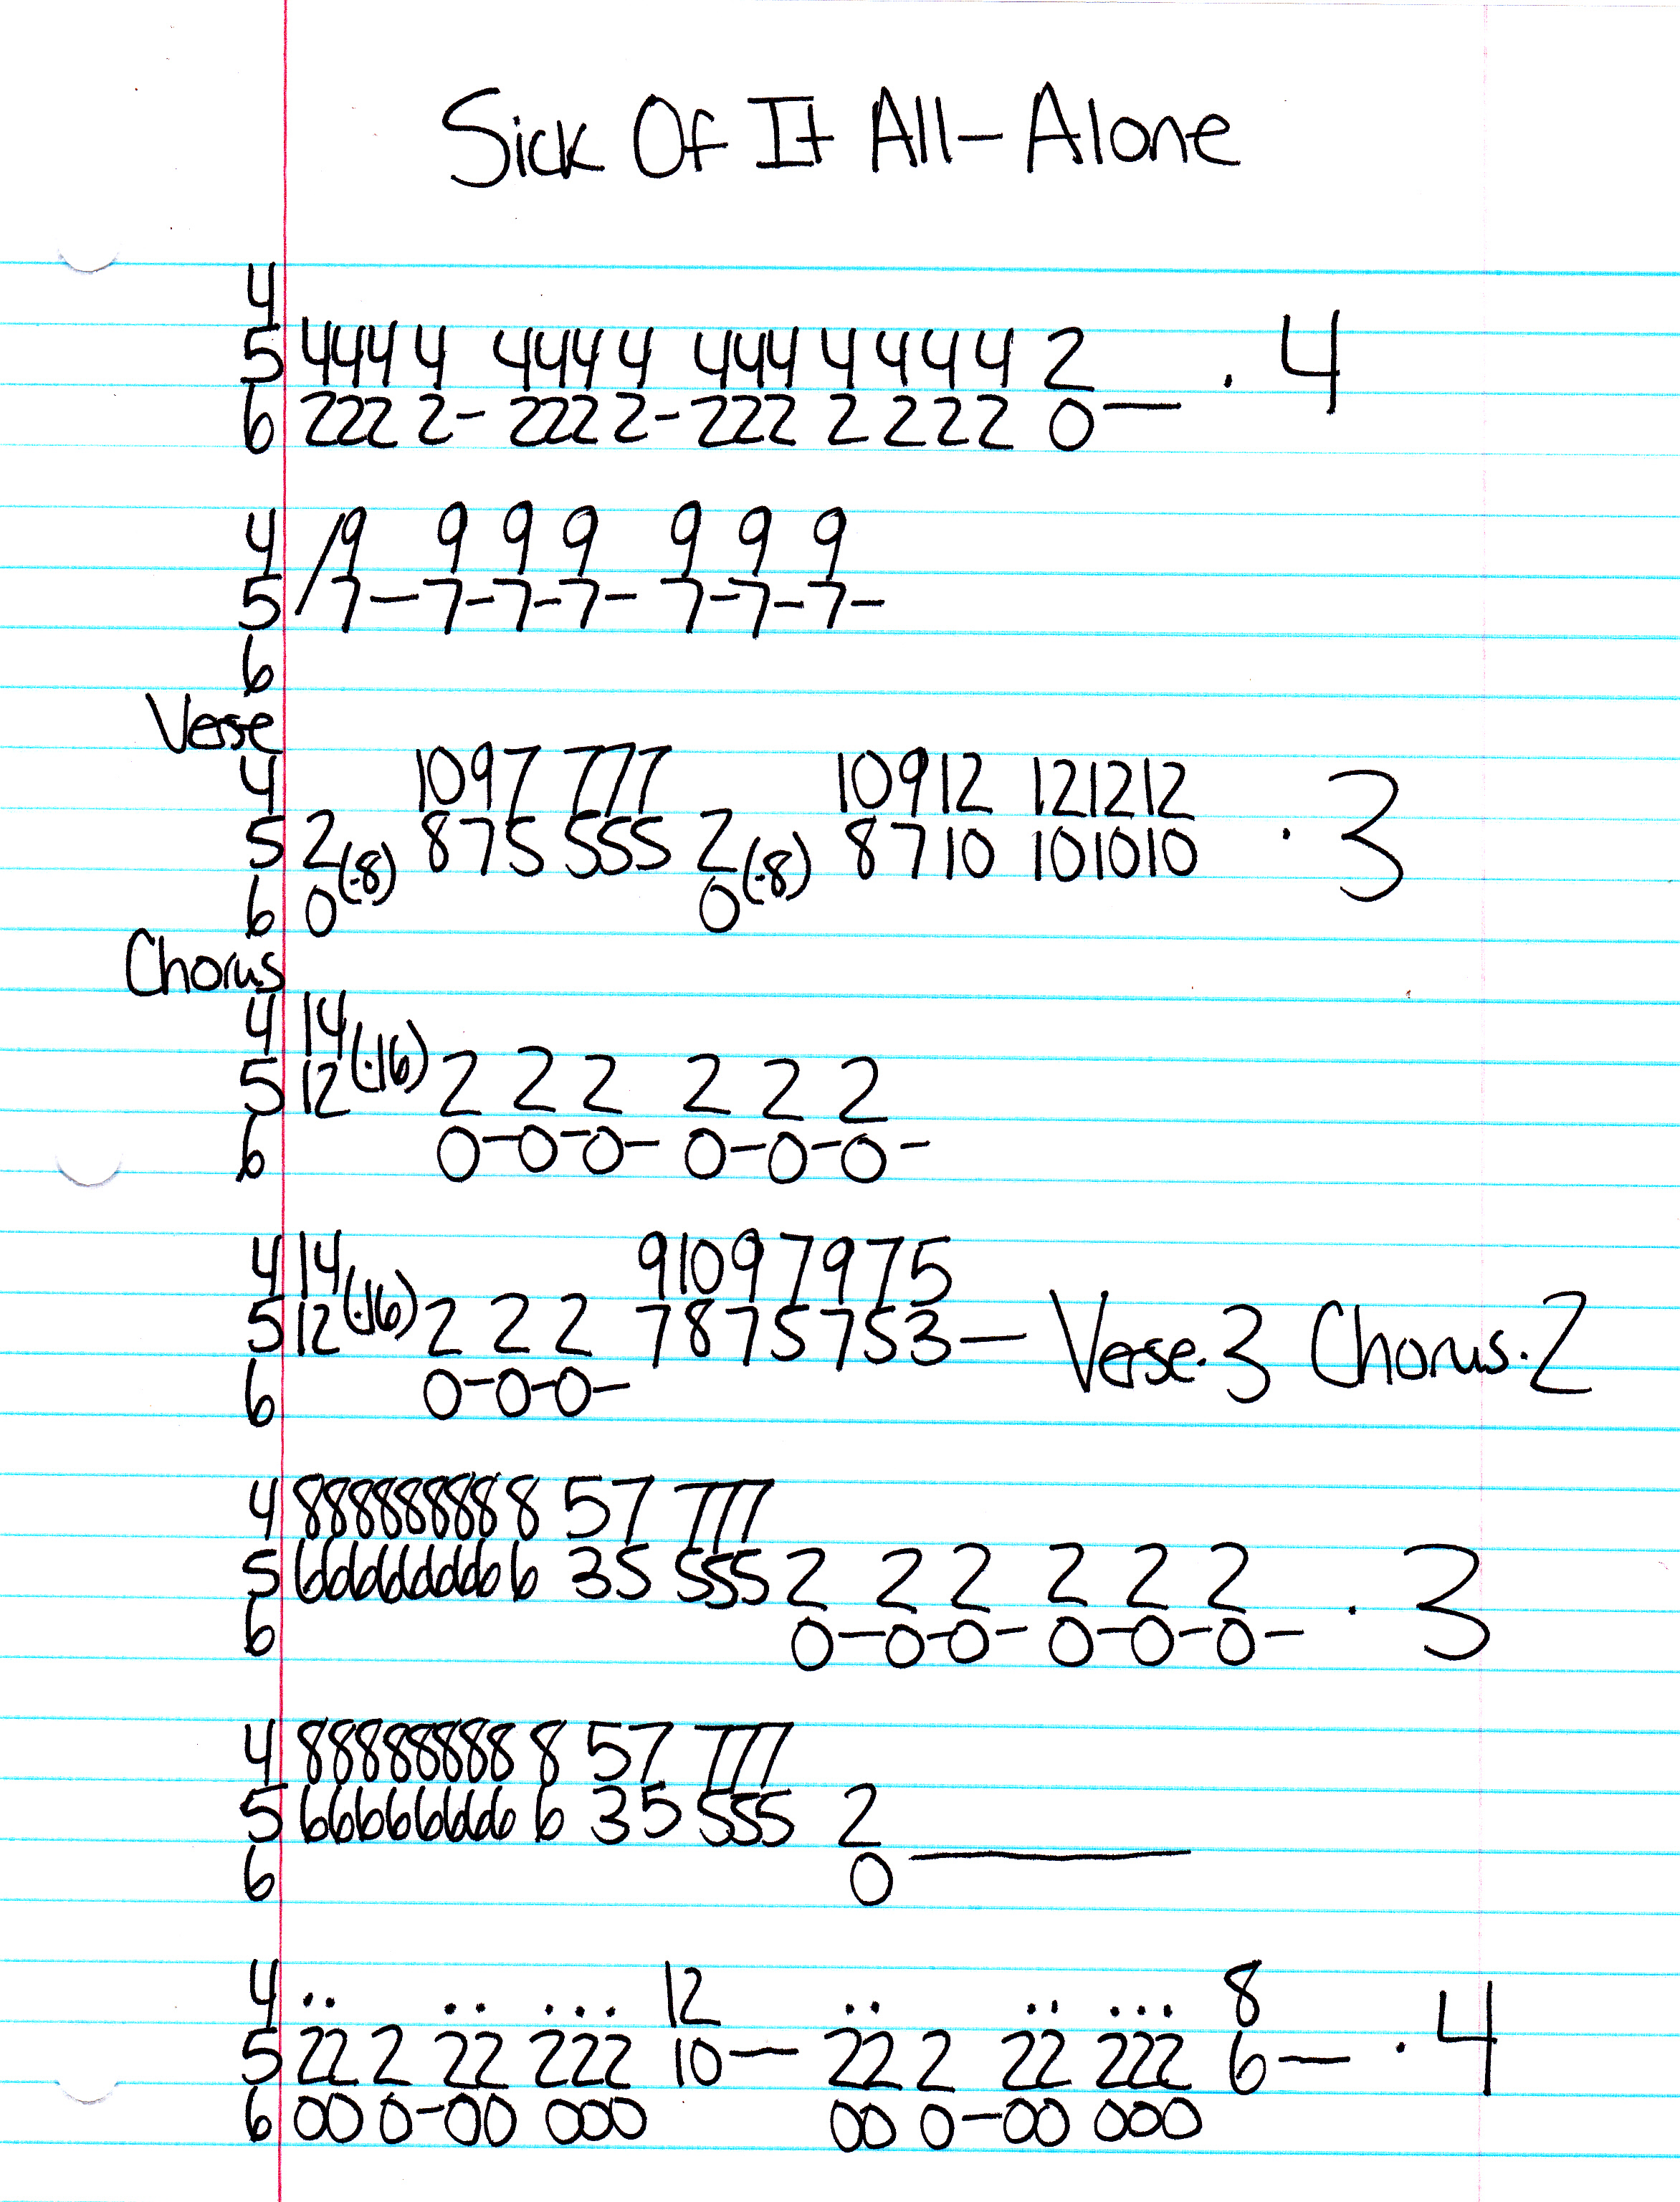 Sick Of It All - Alone
4
5 4444 4444 444 4 4 4 4 2 . 4
6 222 2- 222 2- 222 2 2 2 2 0—
4 /9 9 9 9 9 9 9
5 /7—7-7-7- 7-7-7-
6
Verse
4 10 9 7 777 10 9 12 12 12 12
5 2 (·8) 8 7 5 555 2 (·8) 8 7 10 10 10 10 · 3
6 0 0
Chorus
4 14
5 12 (·16) 2 2 2 2 2 2
6 0-0-0- 0-0-0-
4 14 9 10 9 7 9 7 5
5 12 (·16) 2 2 2 7 8 7 5 7 5 3— Verse·3 Chorus·2
6 0-0-0-
4 88888888 8 57 777
5 66666666 6 35 555 2 2 2 2 2 2 · 3
6 0-0-0- 0-0-0-
4 88888888 8 57 777
5 66666666 6 35 555 2
6 0—
4 .. .. ... 12 .. .. ... 8
5 22 2 22 222 10— 22 2 22 222 6— · 4
6 00 0-00 000 00 0-00 000